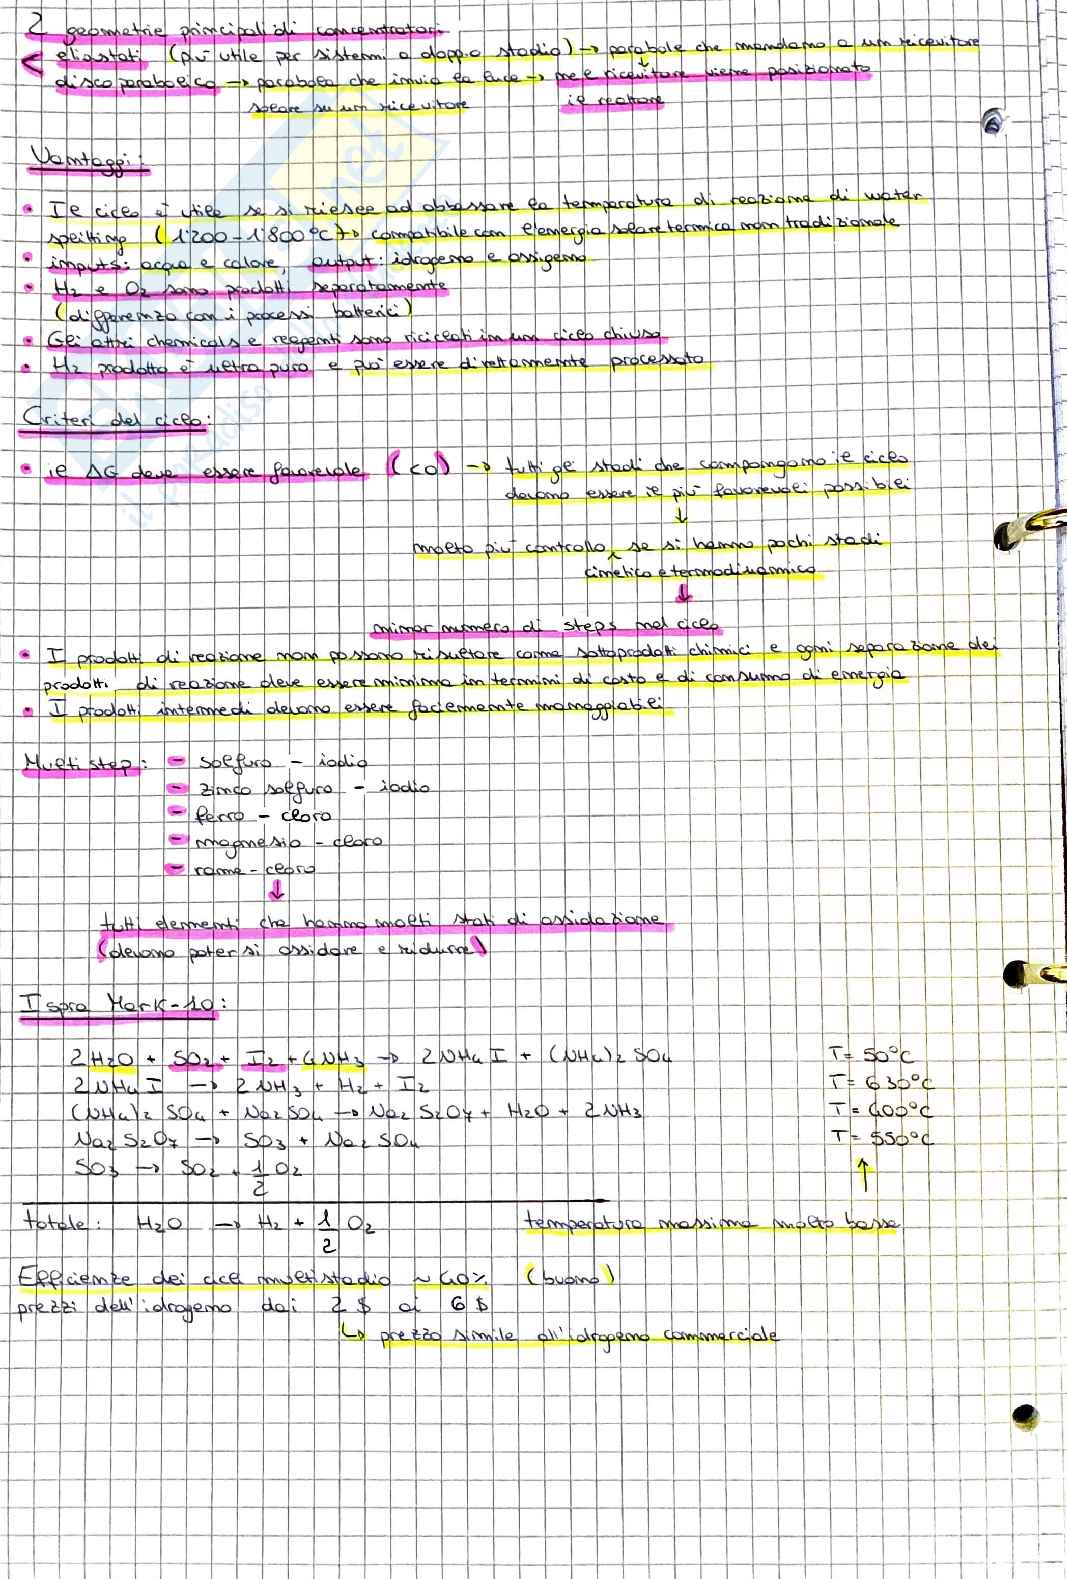 2 geometrie principali di concentratori
< eliostati (più utile per sistemi a doppio stadio) → parabole che mandano a un ricevitore
disco parabolico → parabola che invia la luce → nel ricevitore viene posizionato
solare su un ricevitore il reattore
Vantaggi:
• Il ciclo è utile se si riesce ad abbassare la temperatura di reazione di water
splitting (1'200-1'800°C) → compatibile con l'energia solare termica non tradizionale
• inputs: acqua e calore, output: idrogeno e ossigeno
• H2 e O2 sono prodotti separatamente
(differenza con i processi batterici)
• Gli altri chemicals e reagenti sono riciclati in un ciclo chiuso
• H2 prodotto è ultra puro e può essere direttamente processato
Criteri del ciclo:
• il ΔG deve essere favorevole (<0) → tutti gli stadi che compongono il ciclo
devono essere il più favorevoli possibili
↓
molto più controllo se si hanno pochi stadi
^ cinetico e termodinamico
↓
minor numero di steps nel ciclo
• I prodotti di reazione non possono risultare come sottoprodotti chimici e ogni separazione dei
prodotti di reazione deve essere minima in termini di costo e di consumo di energia
• I prodotti intermedi devono essere facilmente maneggiabili
Multi step: - solfuro - iodio
- zinco solfuro - iodio
- ferro - cloro
- magnesio - cloro
- rame - cloro
↓
tutti elementi che hanno molti stati di ossidazione
(devono potersi ossidare e ridurre)
Ispra Mark-10:
2H2O + SO2 + I2 + 4NH3 → 2NH4I + (NH4)2SO4 T= 50°C
2NH4I → 2NH3 + H2 + I2 T= 630°C
(NH4)2SO4 + Na2SO4 → Na2S2O7 + H2O + 2NH3 T= 400°C
Na2S2O7 → SO3 + Na2SO4 T= 550°C
SO3 → SO2 + 1/2 O2 ↑
totale: H2O → H2 + 1/2 O2 temperatura massima molto bassa
Efficienze dei cicli multistadio ~ 40% (buono)
prezzi dell'idrogeno dai 2$ ai 6$
↳ prezzo simile all'idrogeno commerciale